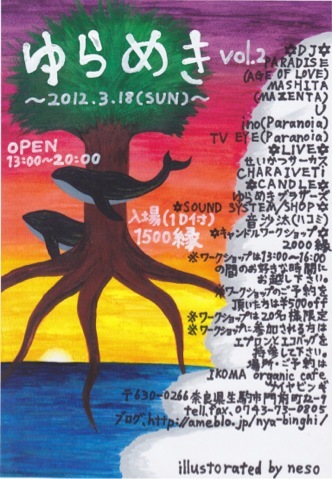 ゆらめき vol.2
～2012.3.18(SUN)～
OPEN
13:00～20:00
入場(1D付)
1500縁
✡DJ✡
PARADISE
(AGE OF LOVE)
MASHITA
(MAZENTA)
U
jno(Paranoia)
TV EYE(Paranoia)
✡LIVE✡
せいかつサーカス
CHARAIVETI
✡CANDLE✡
ゆらめきブラザーズ
✡SOUND SYSTEM/SHOP✡
音沙汰(ハコミ)
✡キャンドルワークショップ✡
2000縁
※ワークショップは13:00～16:00
の間のお好きな時間に
お越し下さい。
※ワークショップのご予約を
頂いた方は¥500off
※ワークショップは20名様限定
※ワークショップに参加される方は
エプロンとエコバッグを
持参して下さい。
場所・ご予約は
IKOMA organic cafe
ナイヤビンギ
〒630-0266 奈良県生駒市門前町2-7
tell,fax、0743-73-0805
ブログ、http://ameblo.jp/nya-binghi/
illustorated by neso